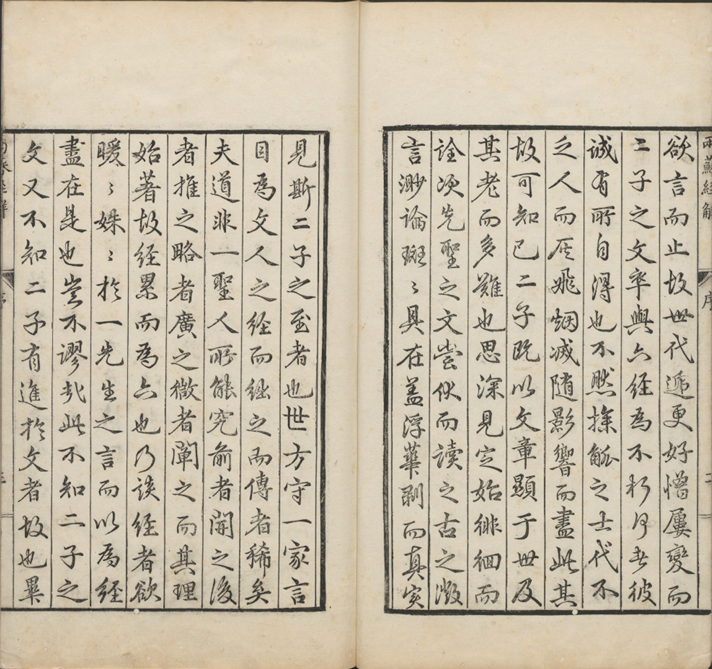 兩蘇經解
序
二
欲言而止故世代遞更好憎屢變而
二子之文卒與六經為不朽何者彼
誠有所自得也不然操觚之士代不
乏人而灰飛烟滅随影響而盡此其
故可知已二子既以文章顯于世及
其老而多難也思深見定始徘徊而
詮次先聖之文嘗伏而讀之古之微
言渺論斑〻具在蓋浮華剝而真实
見斯二子之至者也世方守一家言
目為文人之經而絀之而傳者稀矣
夫道非一聖人所能究前者開之後
者推之略者廣之微者闡之而其理
始著故經累而為六也乃談經者欲
暖〻姝〻於一先生之言而以為經
盡在是也豈不謬哉此不知二子之
文又不知二子有進於文者故也畢